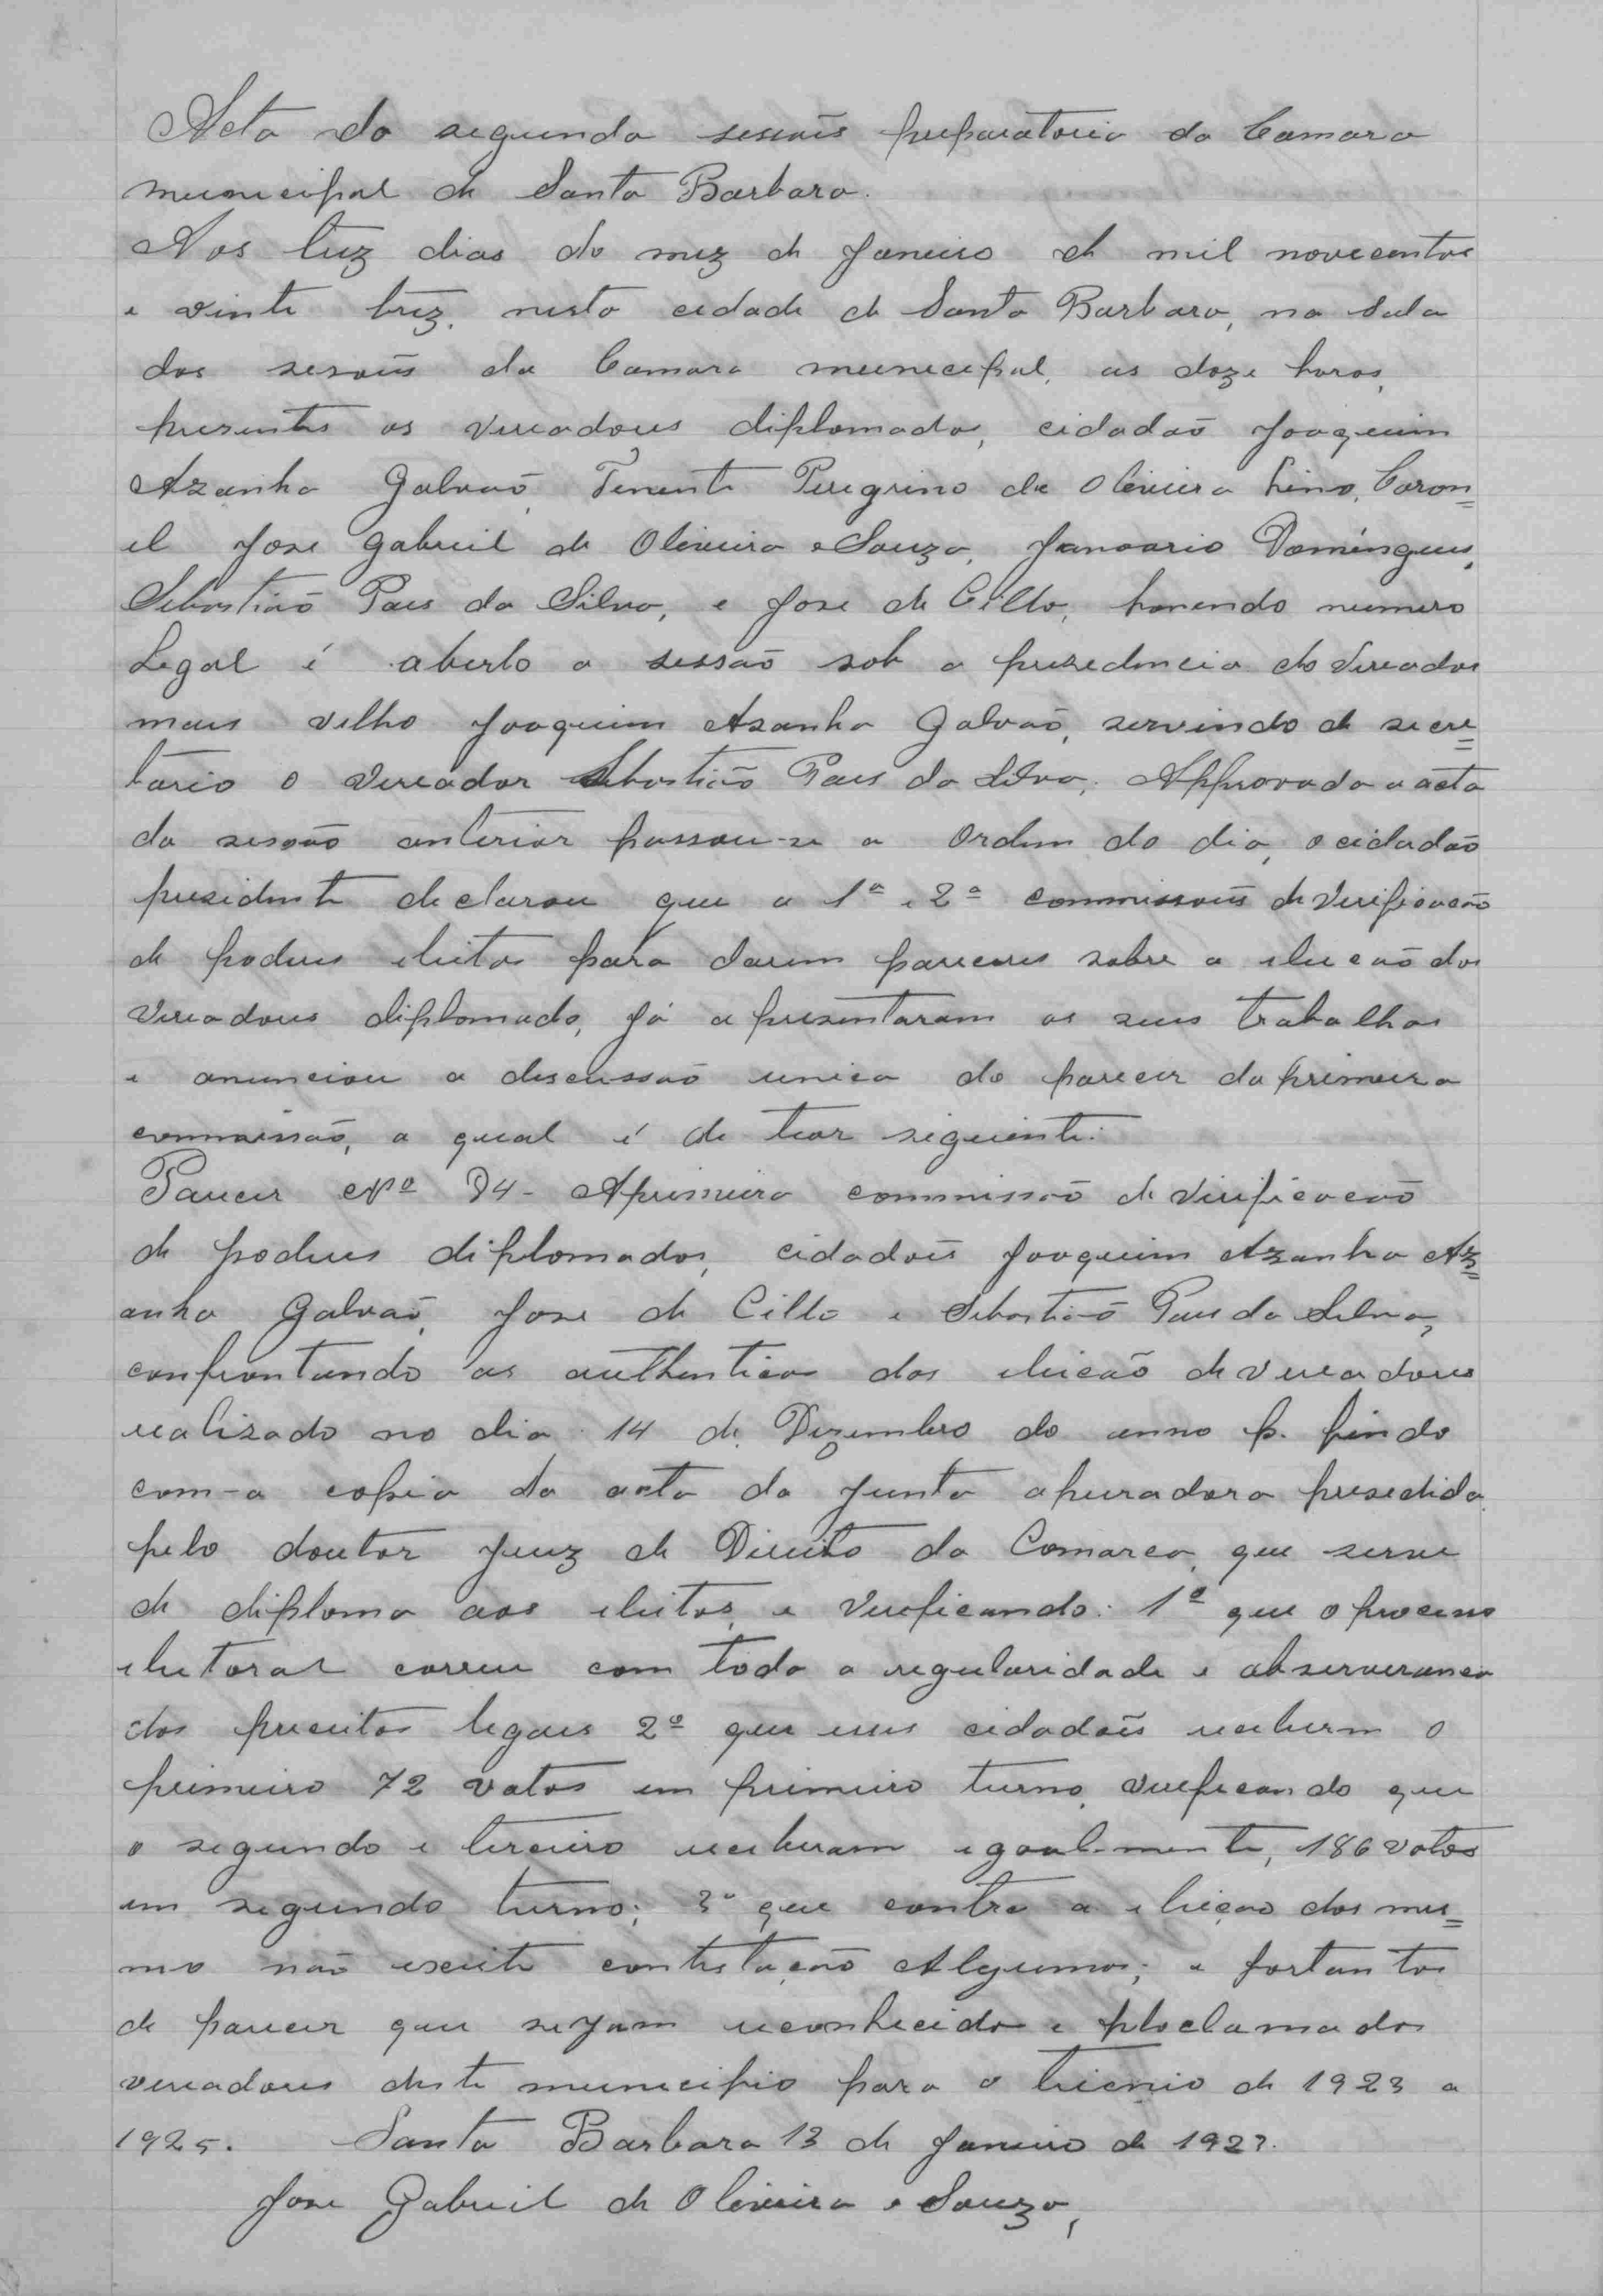 Acta da segunda sessão preparatoria da Camara
municipal de Santa Barbara.
Aos trez dias do mez de Janeiro de mil novecentos
e vinte trez, nesta cidade de Santa Barbara, na sala
das sessões da Camara municipal, as doze horas,
presentes os vereadores diplomados, cidadão Joaquim
Azanha Galvão, Tenente Peregrino de Oliveira Lino, Coron=
el Jose Gabriel de Oliveira e Souza, Januario Domingues,
Sebastião Paes da Silva, e Jose de Cillo, havendo numero
Legal é aberto a sessão sob a presedencia do Vereador
mais velho Joaquim Azanha Galvão, servindo de secre=
tario o Vereador Sebastião Paes da Silva. Approvada a acta
da sessão anterior passou-se a Ordem do dia, o cidadão
presidente declarou que a 1ª e 2ª commissões de Verificação
de poderes eleitas para darem pareceres sobre a eleicão dos
Vereadores diplomado, já apresentaram os seus trabalhos
e anunciou a descussão unica do parecer da primeira
commissão, a qual é de teor seguinte:
Parecer Nº 94 - A primeira commissão de Virificacão
de poderes diplomados, cidadões Joaquim Azanha Az=
anha Galvão, Jose de Cillo e Sebastião Paes da Silva,
confrontando as authenticas das eleicão de vereadores
realizado no dia 14 de Dezembro do anno p. findo
com-a copia da acta da junta apuradora presedida
pelo doutor Juiz de Direito da Comarca, que serve
de diploma aos eleitos, e Vereficando: 1º que o processo
eleitoral correu com toda a regularidade e observancia
dos preceitos legaes 2º que esses cidadões receberm o
primeiro 72 votos em primeiro turno, vereficando que
o segundo e terceiro receberam egoal-mente, 186 votos
em segundo turno; 3º que contra a eleiçao dos mes=
mo não existe contestação Algumas; e portantos
de parecer que sejam reconhecido e ploclamados
vereadores deste municipio para o trienio de 1923 a
1925. Santa Barbara 13 de Janeiro de 1923.
Jose Gabriel de Oliveira e Souza,